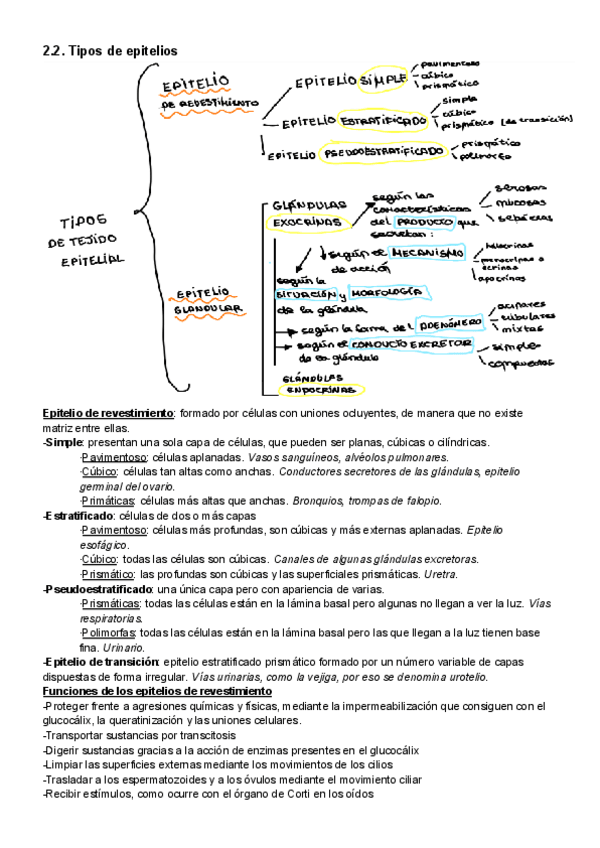 2.2. Tipos de epitelios
TIPOS
DE TEJIDO
EPITELIAL
EPITELIO
DE REVESTIMIENTO
EPITELIO SIMPLE
pavimentoso
cúbico
prismático
EPITELIO ESTRATIFICADO
simple
cúbico
prismático (de transición)
EPITELIO PSEUDOESTRATIFICADO
prismático
polimorfo
EPITELIO
GLANDULAR
GLÁNDULAS
EXOCRINAS
según las
características
del PRODUCTO que
secretan:
serosas
mucosas
sebáceas
según el MECANISMO
de acción
holocrinas
merocrinas o
ecrinas
apocrinas
según la
SITUACIÓN y MORFOLOGÍA
de la glándula
según la forma del ADENÓMERO
acinares
tubulares
mixtas
según el CONDUCTO EXCRETOR
de la glándula
simples
compuestas
GLÁNDULAS
ENDOCRINAS
Epitelio de revestimiento: formado por células con uniones ocluyentes, de manera que no existe
matriz entre ellas.
-Simple: presentan una sola capa de células, que pueden ser planas, cúbicas o cilíndricas.
·Pavimentoso: células aplanadas. Vasos sanguíneos, alvéolos pulmonares.
·Cúbico: células tan altas como anchas. Conductores secretores de las glándulas, epitelio
germinal del ovario.
·Primáticas: células más altas que anchas. Bronquios, trompas de falopio.
-Estratificado: células de dos o más capas
·Pavimentoso: células más profundas, son cúbicas y más externas aplanadas. Epitelio
esofágico.
·Cúbico: todas las células son cúbicas. Canales de algunas glándulas excretoras.
·Prismático: las profundas son cúbicas y las superficiales prismáticas. Uretra.
-Pseudoestratificado: una única capa pero con apariencia de varias.
·Prismáticas: todas las células están en la lámina basal pero algunas no llegan a ver la luz. Vías
respiratorias.
·Polimorfas: todas las células están en la lámina basal pero las que llegan a la luz tienen base
fina. Urinario.
-Epitelio de transición: epitelio estratificado prismático formado por un número variable de capas
dispuestas de forma irregular. Vías urinarias, como la vejiga, por eso se denomina urotelio.
Funciones de los epitelios de revestimiento
-Proteger frente a agresiones químicas y físicas, mediante la impermeabilización que consiguen con el
glucocálix, la queratinización y las uniones celulares.
-Transportar sustancias por transcitosis
-Digerir sustancias gracias a la acción de enzimas presentes en el glucocálix
-Limpiar las superficies externas mediante los movimientos de los cilios
-Trasladar a los espermatozoides y a los óvulos mediante el movimiento ciliar
-Recibir estímulos, como ocurre con el órgano de Corti en los oídos